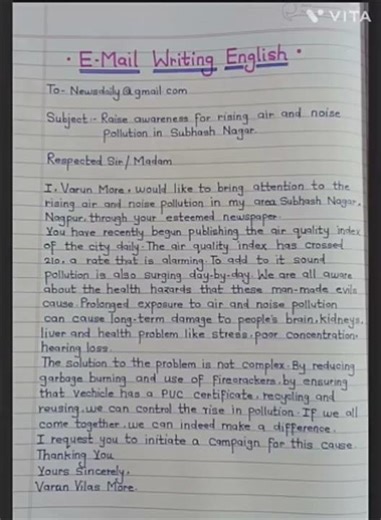 VITA
E-Mail Writing English
To- Newsdaily@gmail com
Subject:- Raise awareness for rising air and noise
Pollution in Subhash Nagar
Respected Sir/Madam
I, Varun More, would like to bring attention to the
rising air and noise pollution in my area Subhash Nagar,
Nagpur, through your esteemed newspaper.
You have recently begun publishing the air quality index
of the city daily. The air quality index has crossed
210, a rate that is alarming. To add to it sound
pollution is also surging day-by-day. We are all aware
about the health hazards that these man-made evils
cause. Prolonged exposure to air and noise pollution
can cause long-term damage to people's brain, kidneys,
liver and health problem like stress, poor concentration,
hearing loss.
The solution to the problem is not complex. By reducing
garbage burning and use of firecrackers, by ensuring
that vechicle has a PUC certificate, recycling and
reusing, we can control the rise in pollution. If we all
come together, we can indeed make a difference.
I request you to initiate a campaign for this cause.
Thanking You
Yours Sincerely,
Varan Vilas More.